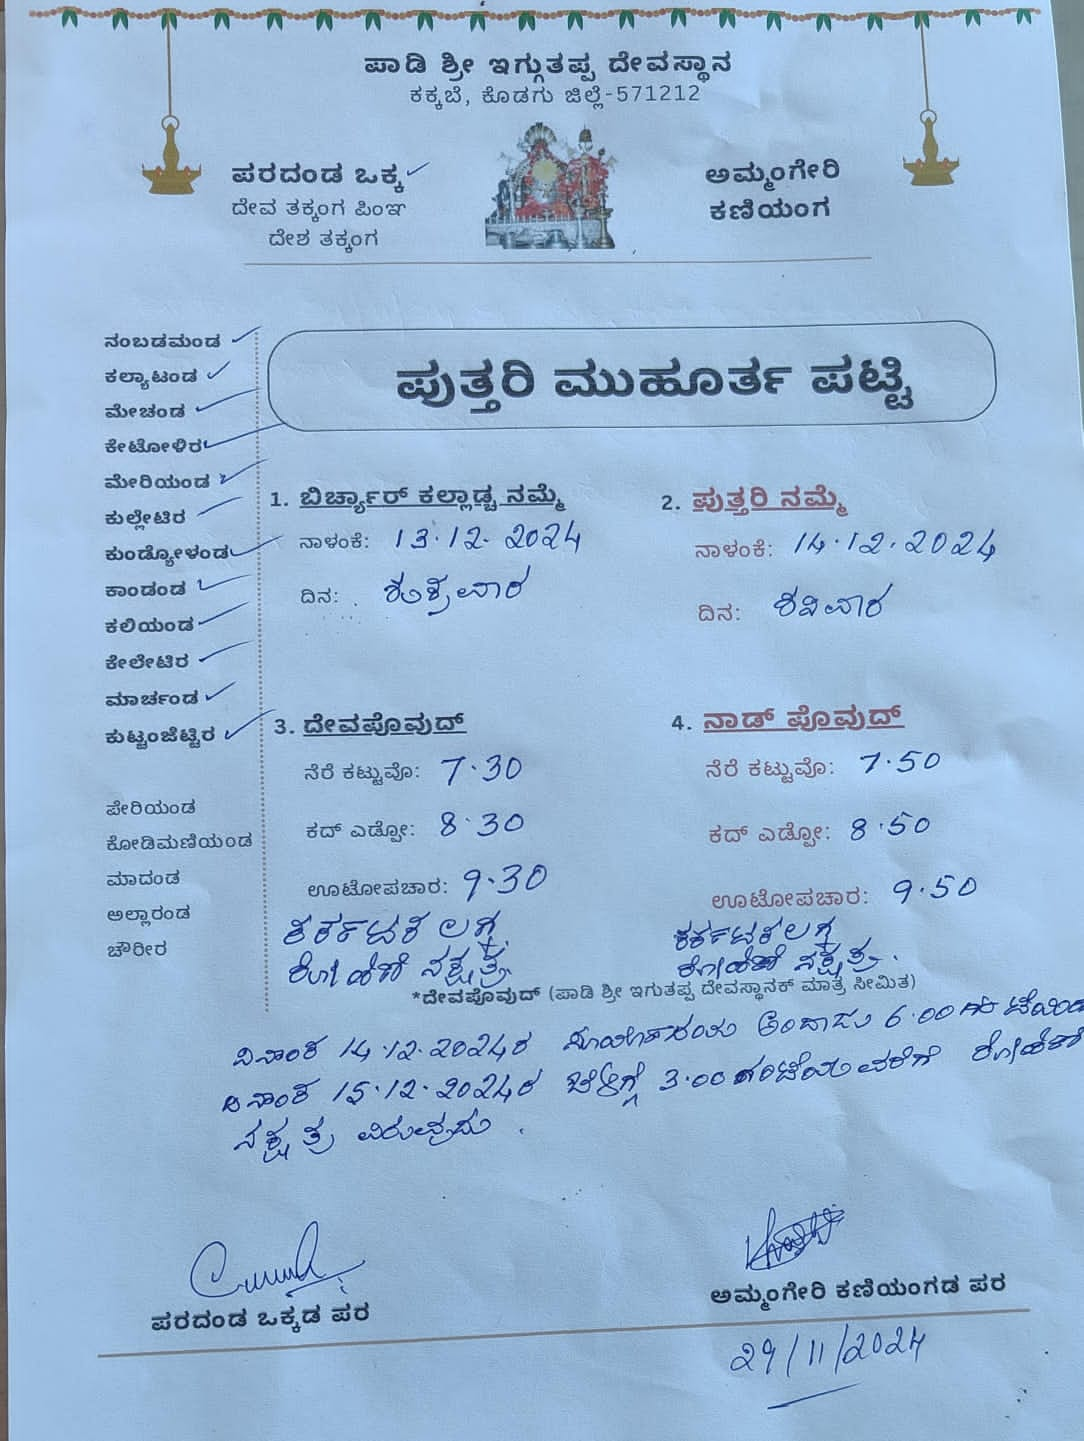 ಪಾಡಿ ಶ್ರೀ ಇಗ್ಗುತಪ್ಪ ದೇವಸ್ಥಾನ
ಕಕ್ಕಬೆ, ಕೊಡಗು ಜಿಲ್ಲೆ-571212
ಪರದಂಡ ಒಕ್ಕ
ದೇವ ತಕ್ಕಂಗ ಪಿಂಞ
ದೇಶ ತಕ್ಕಂಗ
ಅಮ್ಮಂಗೇರಿ
ಕಣಿಯಂಗ
ನಂಬಡಮಂಡ
ಕಲ್ಯಾಟಂಡ
ಮೇಚಂಡ
ಕೇಟೋಳಿರ
ಮೇರಿಯಂಡ
ಕುಲ್ಲೇಟಿರ
ಕುಂಡ್ಯೋಳಂಡ
ಕಾಂಡಂಡ
ಕಲಿಯಂಡ
ಕೇಲೇಟಿರ
ಮಾರ್ಚಂಡ
ಕುಟ್ಟಂಜೆಟ್ಟಿರ
ಪೇರಿಯಂಡ
ಕೋಡಿಮಣಿಯಂಡ
ಮಾದಂಡ
ಅಲ್ಲಾರಂಡ
ಚೌರೀರ
ಪುತ್ತರಿ ಮುಹೂರ್ತ ಪಟ್ಟಿ
1. ಬಿರ್ಚ್ಯಾರ್ ಕಲ್ಲಾಡ್ಚ ನಮ್ಮೆ
ನಾಳಂಕೆ: 13.12.2024
ದಿನ: ಶುಕ್ರವಾರ
2. ಪುತ್ತರಿ ನಮ್ಮೆ
ನಾಳಂಕೆ: 14.12.2024
ದಿನ: ಶನಿವಾರ
3. ದೇವಪೊವುದ್
ನೆರೆ ಕಟ್ಟುವೊ: 7.30
ಕದ್ ಎಡ್ಪೋ: 8.30
ಊಟೋಪಚಾರ: 9.30
ಕರ್ಕಾಟಕ ಲಗ್ನ
ರೋಹಿಣಿ ನಕ್ಷತ್ರ
4. ನಾಡ್ ಪೊವುದ್
ನೆರೆ ಕಟ್ಟುವೊ: 7.50
ಕದ್ ಎಡ್ಪೋ: 8.50
ಊಟೋಪಚಾರ: 9.50
ಕರ್ಕಾಟಕ ಲಗ್ನ
ರೋಹಿಣಿ ನಕ್ಷತ್ರ.
*ದೇವಪೊವುದ್ (ಪಾಡಿ ಶ್ರೀ ಇಗುತಪ್ಪ ದೇವಸ್ಥಾನಕ್ ಮಾತ್ರ ಸೀಮಿತ)
ದಿನಾಂಕ 14.12.2024ರ ಸಾಯಂಕಾಲ ಅಂದಾಜು 6.00 ಗಂಟೆಯಿಂದ
ದಿನಾಂಕ 15.12.2024ರ ಬೆಳಿಗ್ಗೆ 3.00 ಗಂಟೆಯವರೆಗೆ ರೋಹಿಣಿ
ನಕ್ಷತ್ರ ವಿರುವುದು.
ಪರದಂಡ ಒಕ್ಕಡ ಪರ
ಅಮ್ಮಂಗೇರಿ ಕಣಿಯಂಗಡ ಪರ
29/11/2024